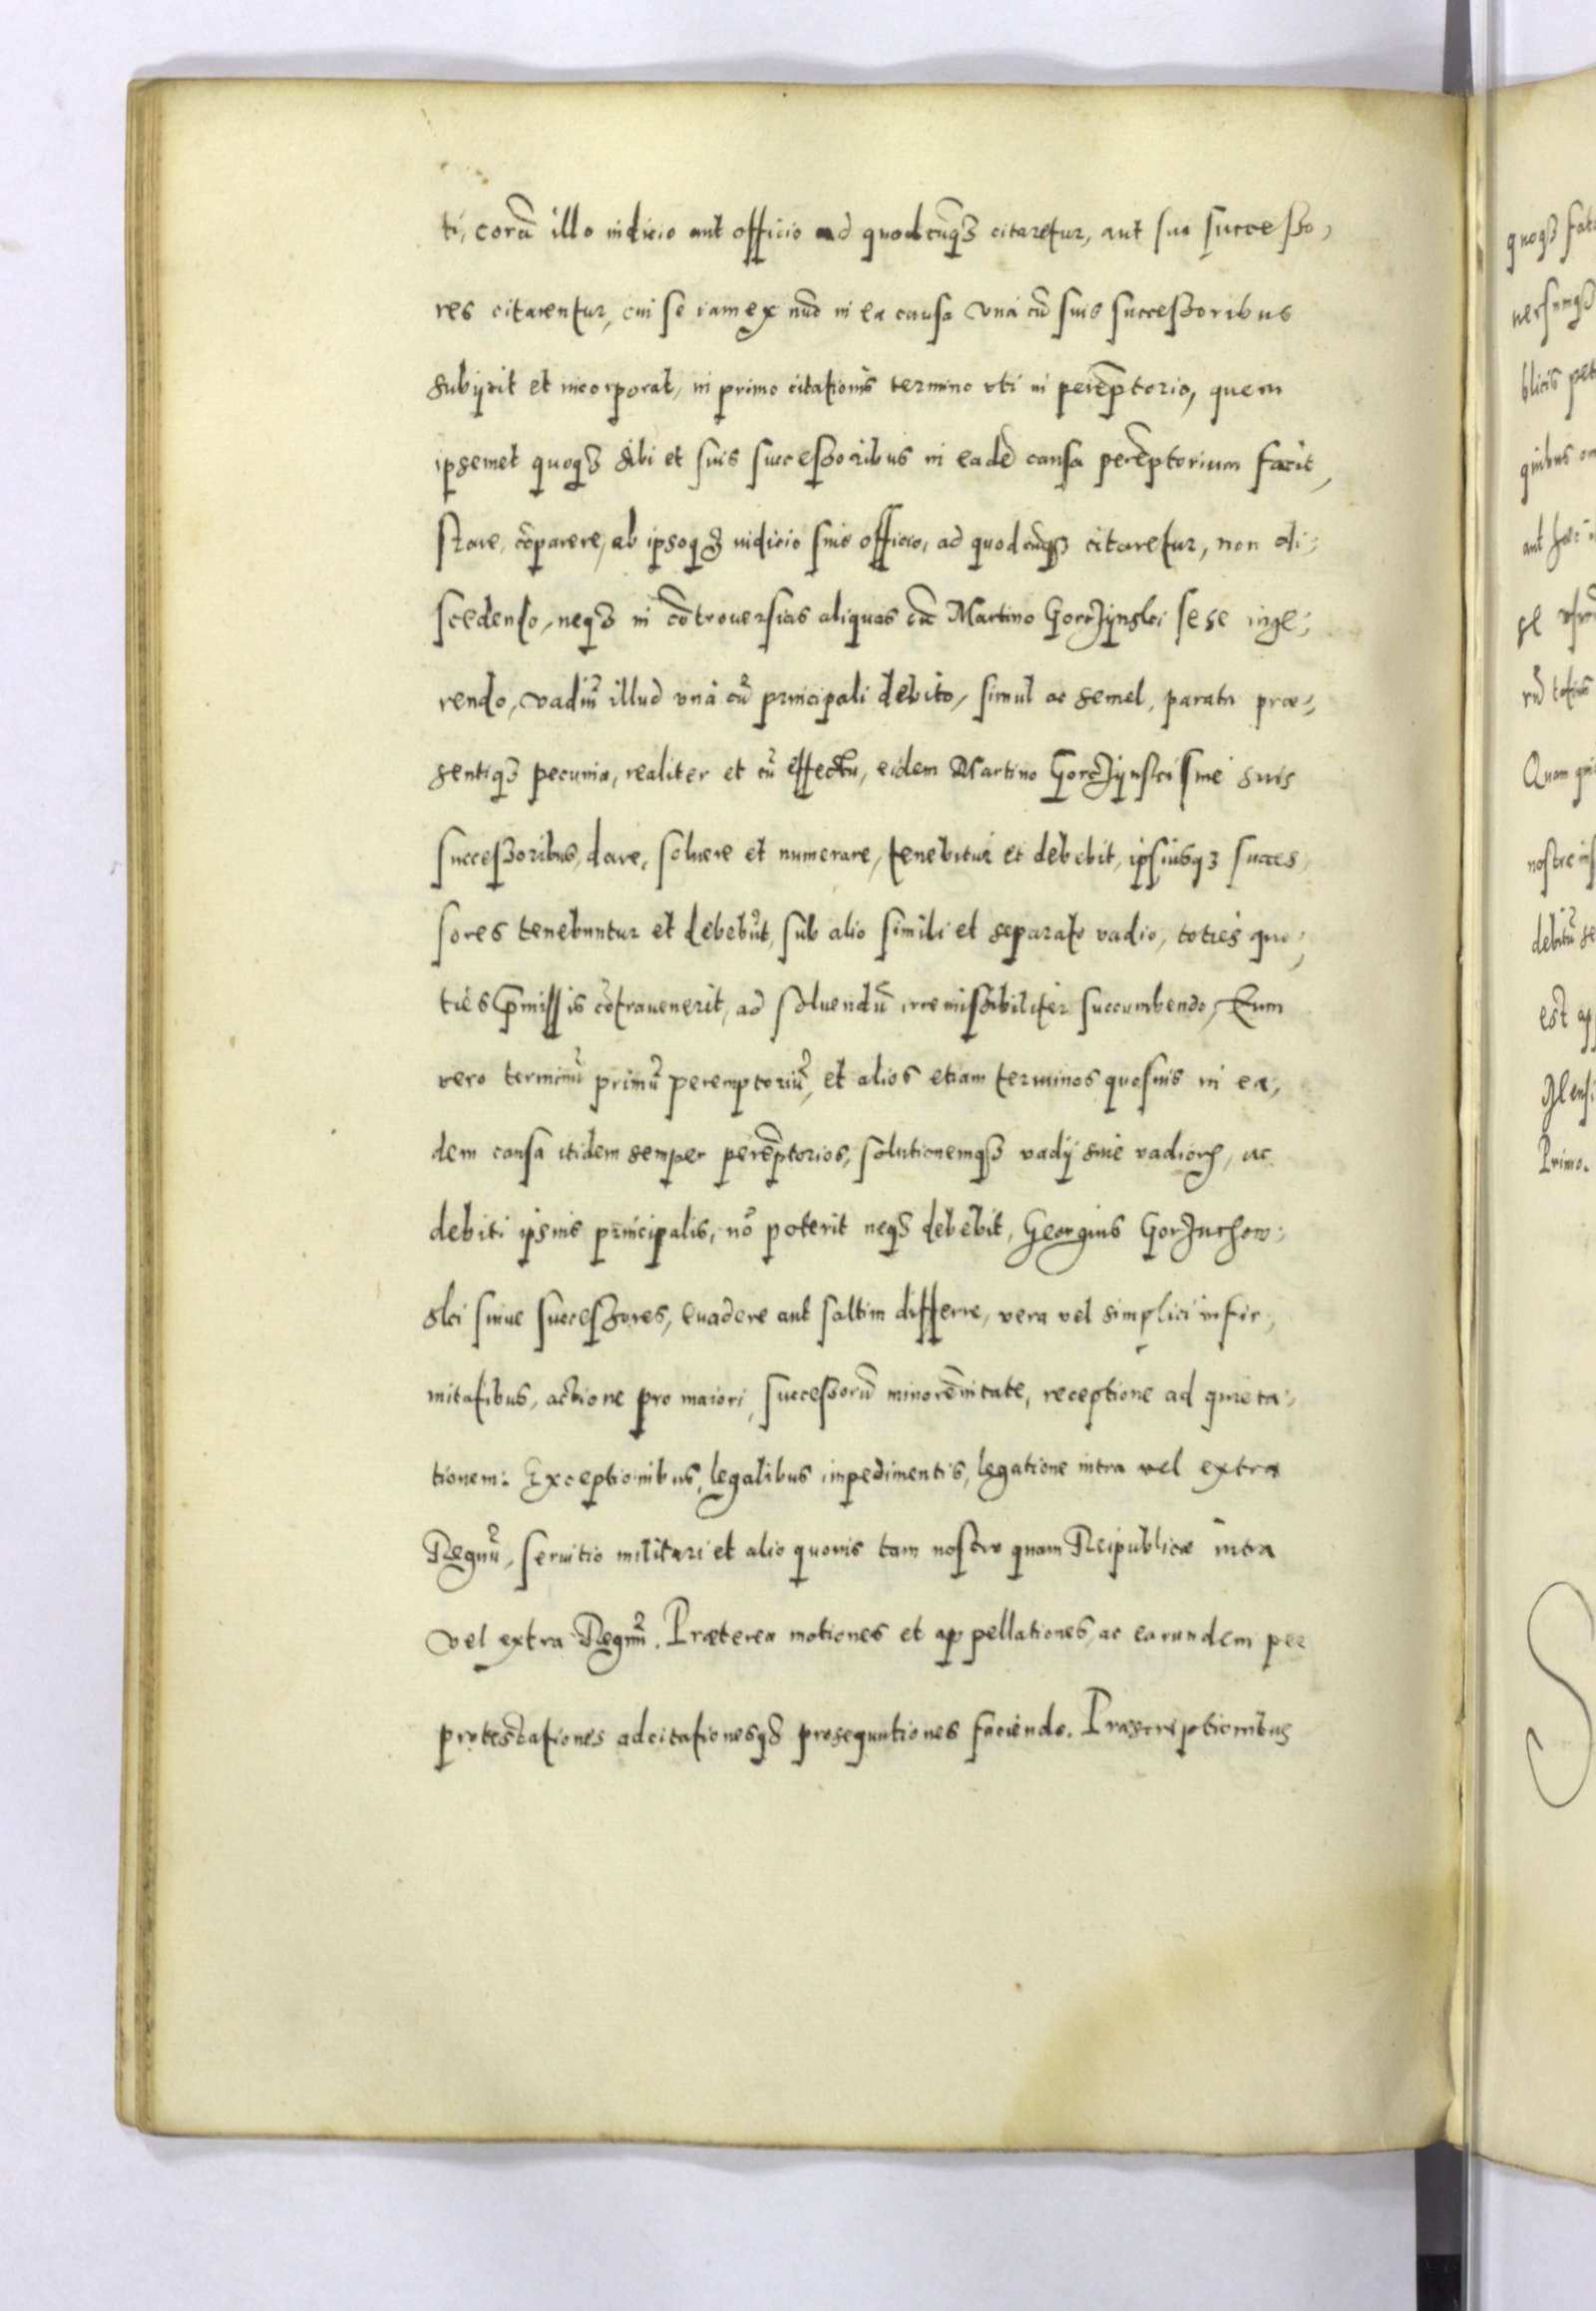 ti, corā illo iudicio aut officio ad quodcūqȝ citaretur, aut sui successo,
res citarentur, cui se iam ex nūc in ea causa vnà cū suis successoribus
subijcit et incorporat, in primo citationis termino vti in perēptorio, quem
ipsemet quoqȝ sibi et suis successoribus in eadē causa perēptorium facit,
stare, cōparere, ab ipsoqȝ iudicio siue officio, ad quodcūqȝ citaretur, non di:
scedendo, neqȝ in cōtrouersias aliquas cū Martino Gorzÿnski sese inge:
rendo, vadiū illud vnà cū principali debito, simul ac semel, parata præ:
sentiqȝ pecunia, realiter et cū effectu, eidem Martino Gorzÿnski siue suis
successoribus, dare, soluere et numerare, tenebitur et debebit, ipsiusqȝ succes
sores tenebuntur et debebūt, sub alio simili et separato vadio, toties quo,
ties p̄missis cōtrauenerit, ad soluendū irremissibiliter succumbendo, Eum
vero terminū primū peremptoriū, et alios etiam terminos quosuis in ea,
dem causa itidem semper perēptorios, solutionemqȝ vadij siue vadioꝝ, ac
debiti ipsius principalis, nō poterit neqȝ debebit, Georgius Gorzuchow:
ski siiue successores, euadere aut saltim differre, vera vel simplici infir,
mitatibus, actione pro maiori, successorū minorēnitate, receptione ad quieta:
tionem: Exceptionibus, legalibus impedimentis, legatione intra vel extra
Regnū, seruitio militari et alio quouis tam nostro quam Reipublicæ intra
vel extra Regnū. Præterea motiones et appellationes, ac earundem per
protestationes adcitationesqȝ prosequutiones faciendo. Præscriptionibus